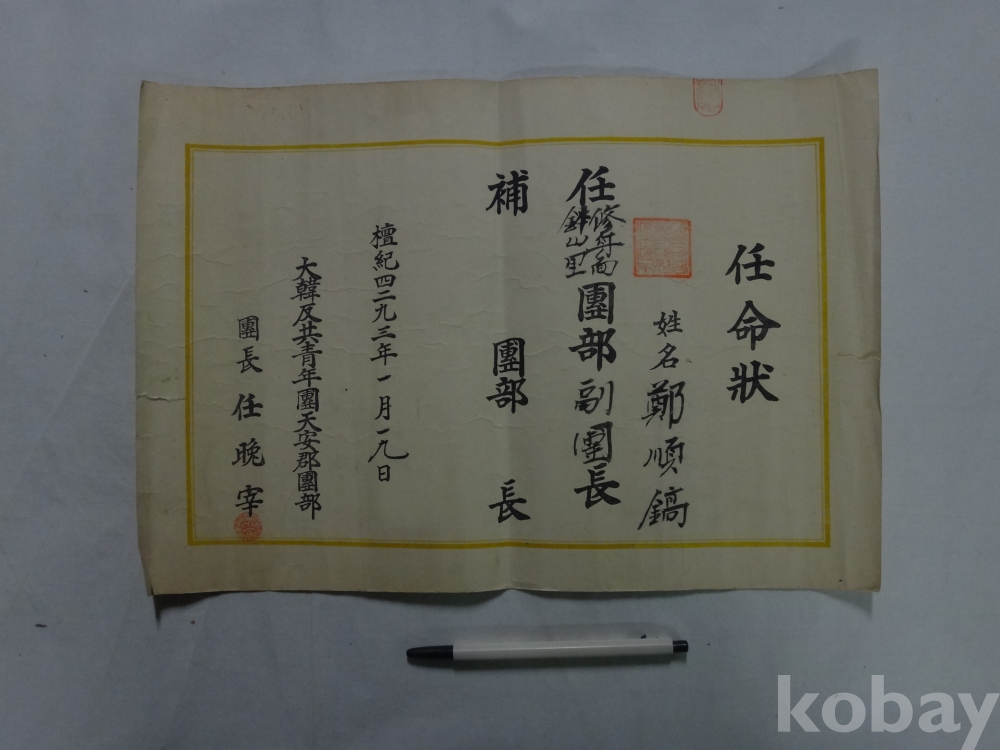 任命狀
姓名 鄭順鎬
任 修身面
山里
團部副團長
補 團部 長
檀紀四二九三年一月一九日
大韓反共青年團天安郡團部
團長 任晚宰
kobay